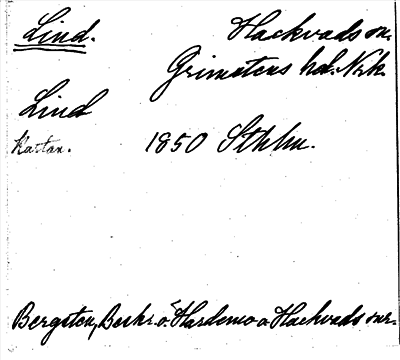 Lind. Hackvads sn.
Grimstens hd. Nrk.
Lind
Kartan. 1850 Sthlm.
Bergsten, Beskr. ö. Hardemo o Hackvads snr.